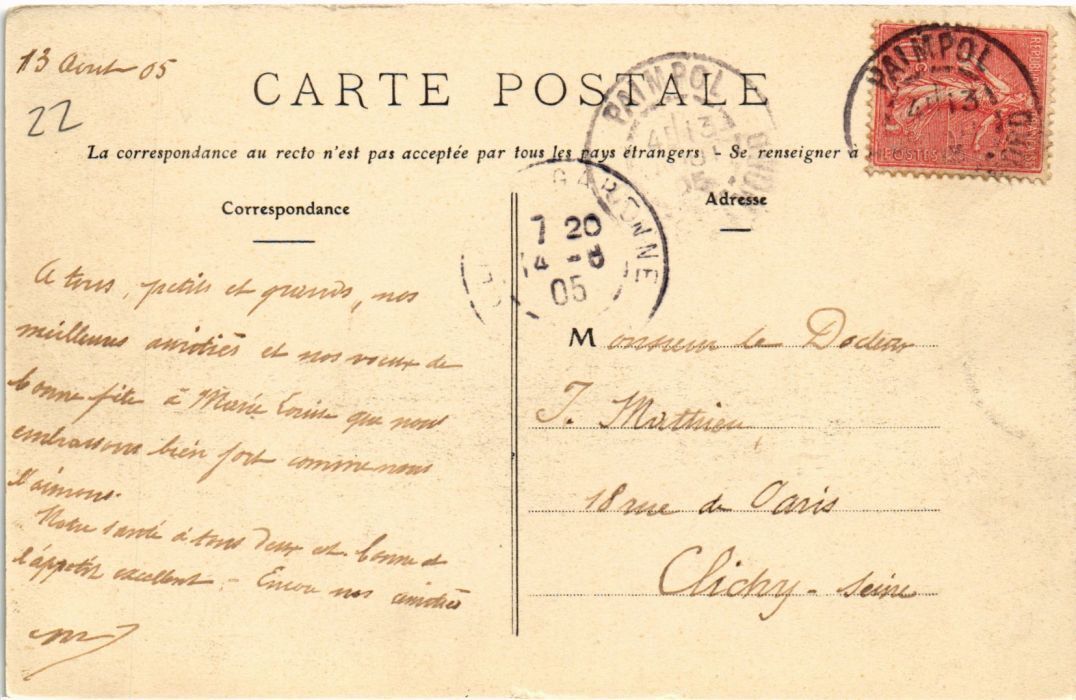 13 Aout 05
22
CARTE POSTALE
La correspondance au recto n'est pas acceptée par tous les pays étrangers - Se renseigner à
PAIMPOL
13
05
PAIMPOL
13
REPUBLIQUE FRANÇAISE
POSTES
Correspondance
GARONNE
7 20
14 -8
05
Adresse
A tous, petits et grands, nos
meilleures amitiés et nos voeux de
bonne fête à Marie Louise que nous
embrassons bien fort comme nous
l'aimons.
Notre santé à tous deux est bonne et
l'appétit excellent - Encore nos amitiés
Monsieur le Docteur
J. Mathieu
18 rue de Paris
Clichy - Seine